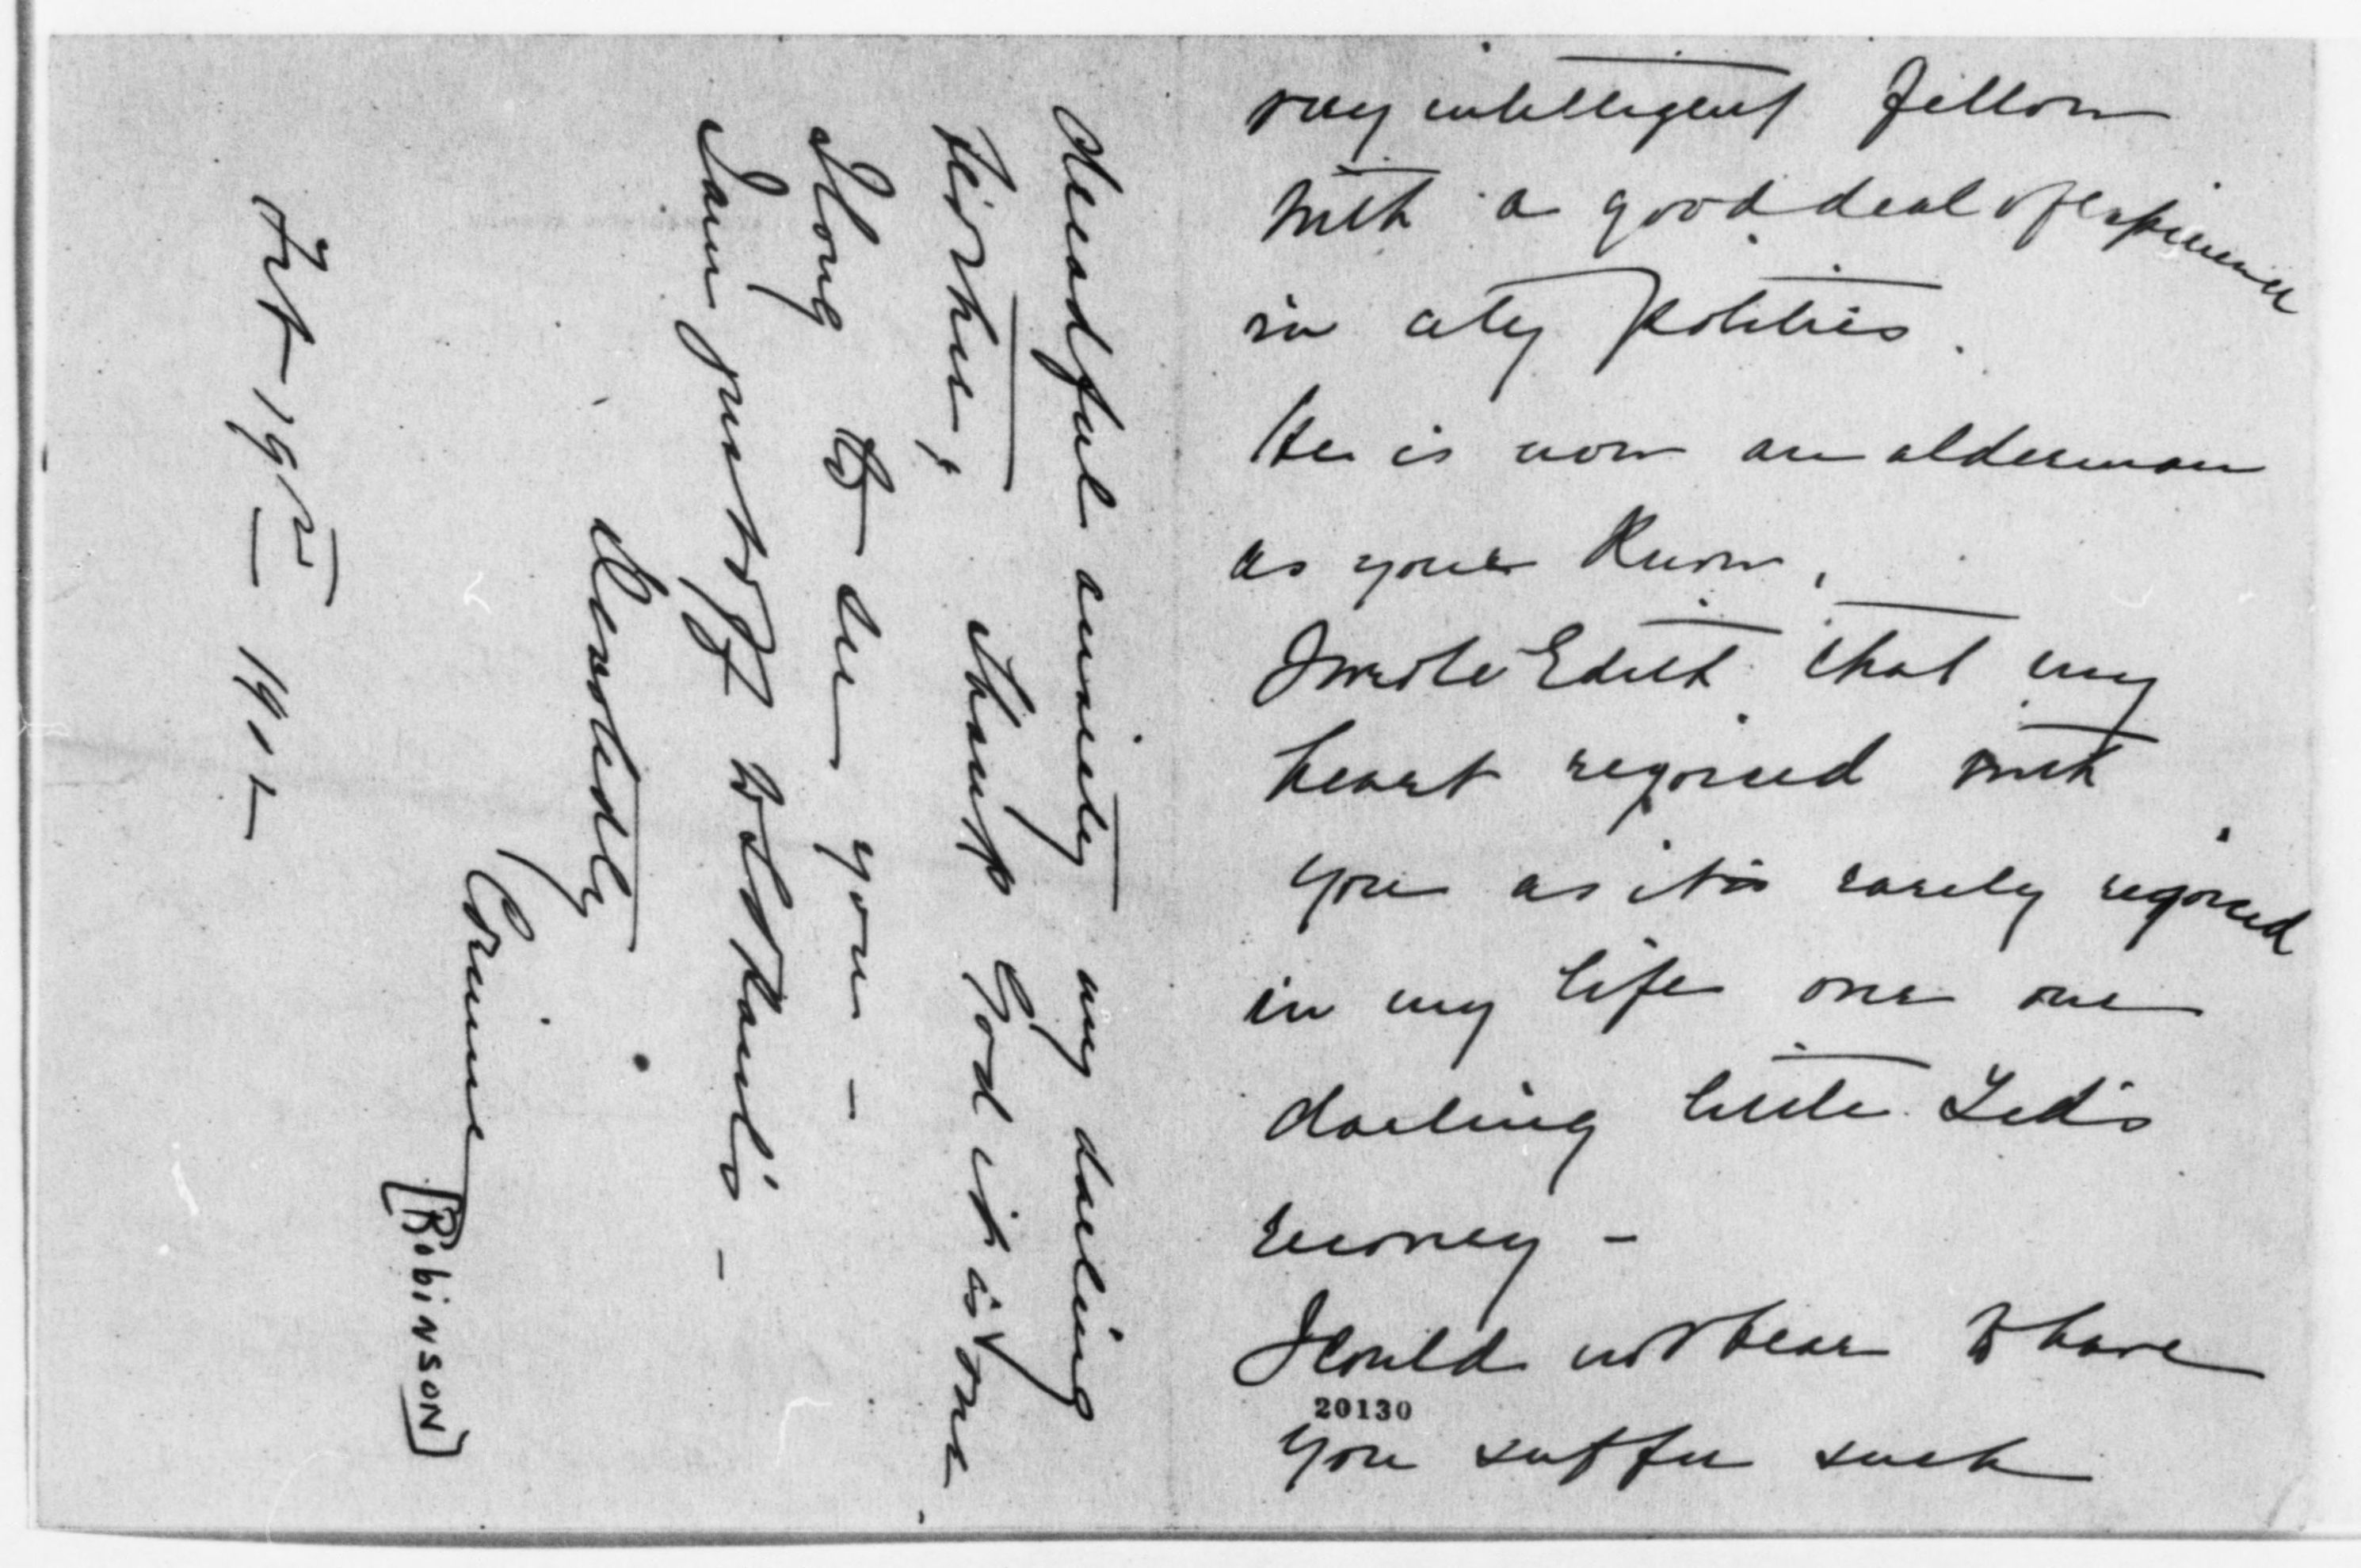 very intelligent fellow
with a good deal of experience
in city politics.
He is now an alderman
as you know,
I wrote Edith that my
heart rejoiced with
you as it has rarely rejoiced
in my life over our
darling little Ted's
recovery –
I could not bear to have
20130
you suffer such
dreadful anxiety my darling
brother, Thank God it is over.
I long to see you –
I am just off to St Paul's –
Devotedly
Corinne
[Robinson]
Feb 19th 1902